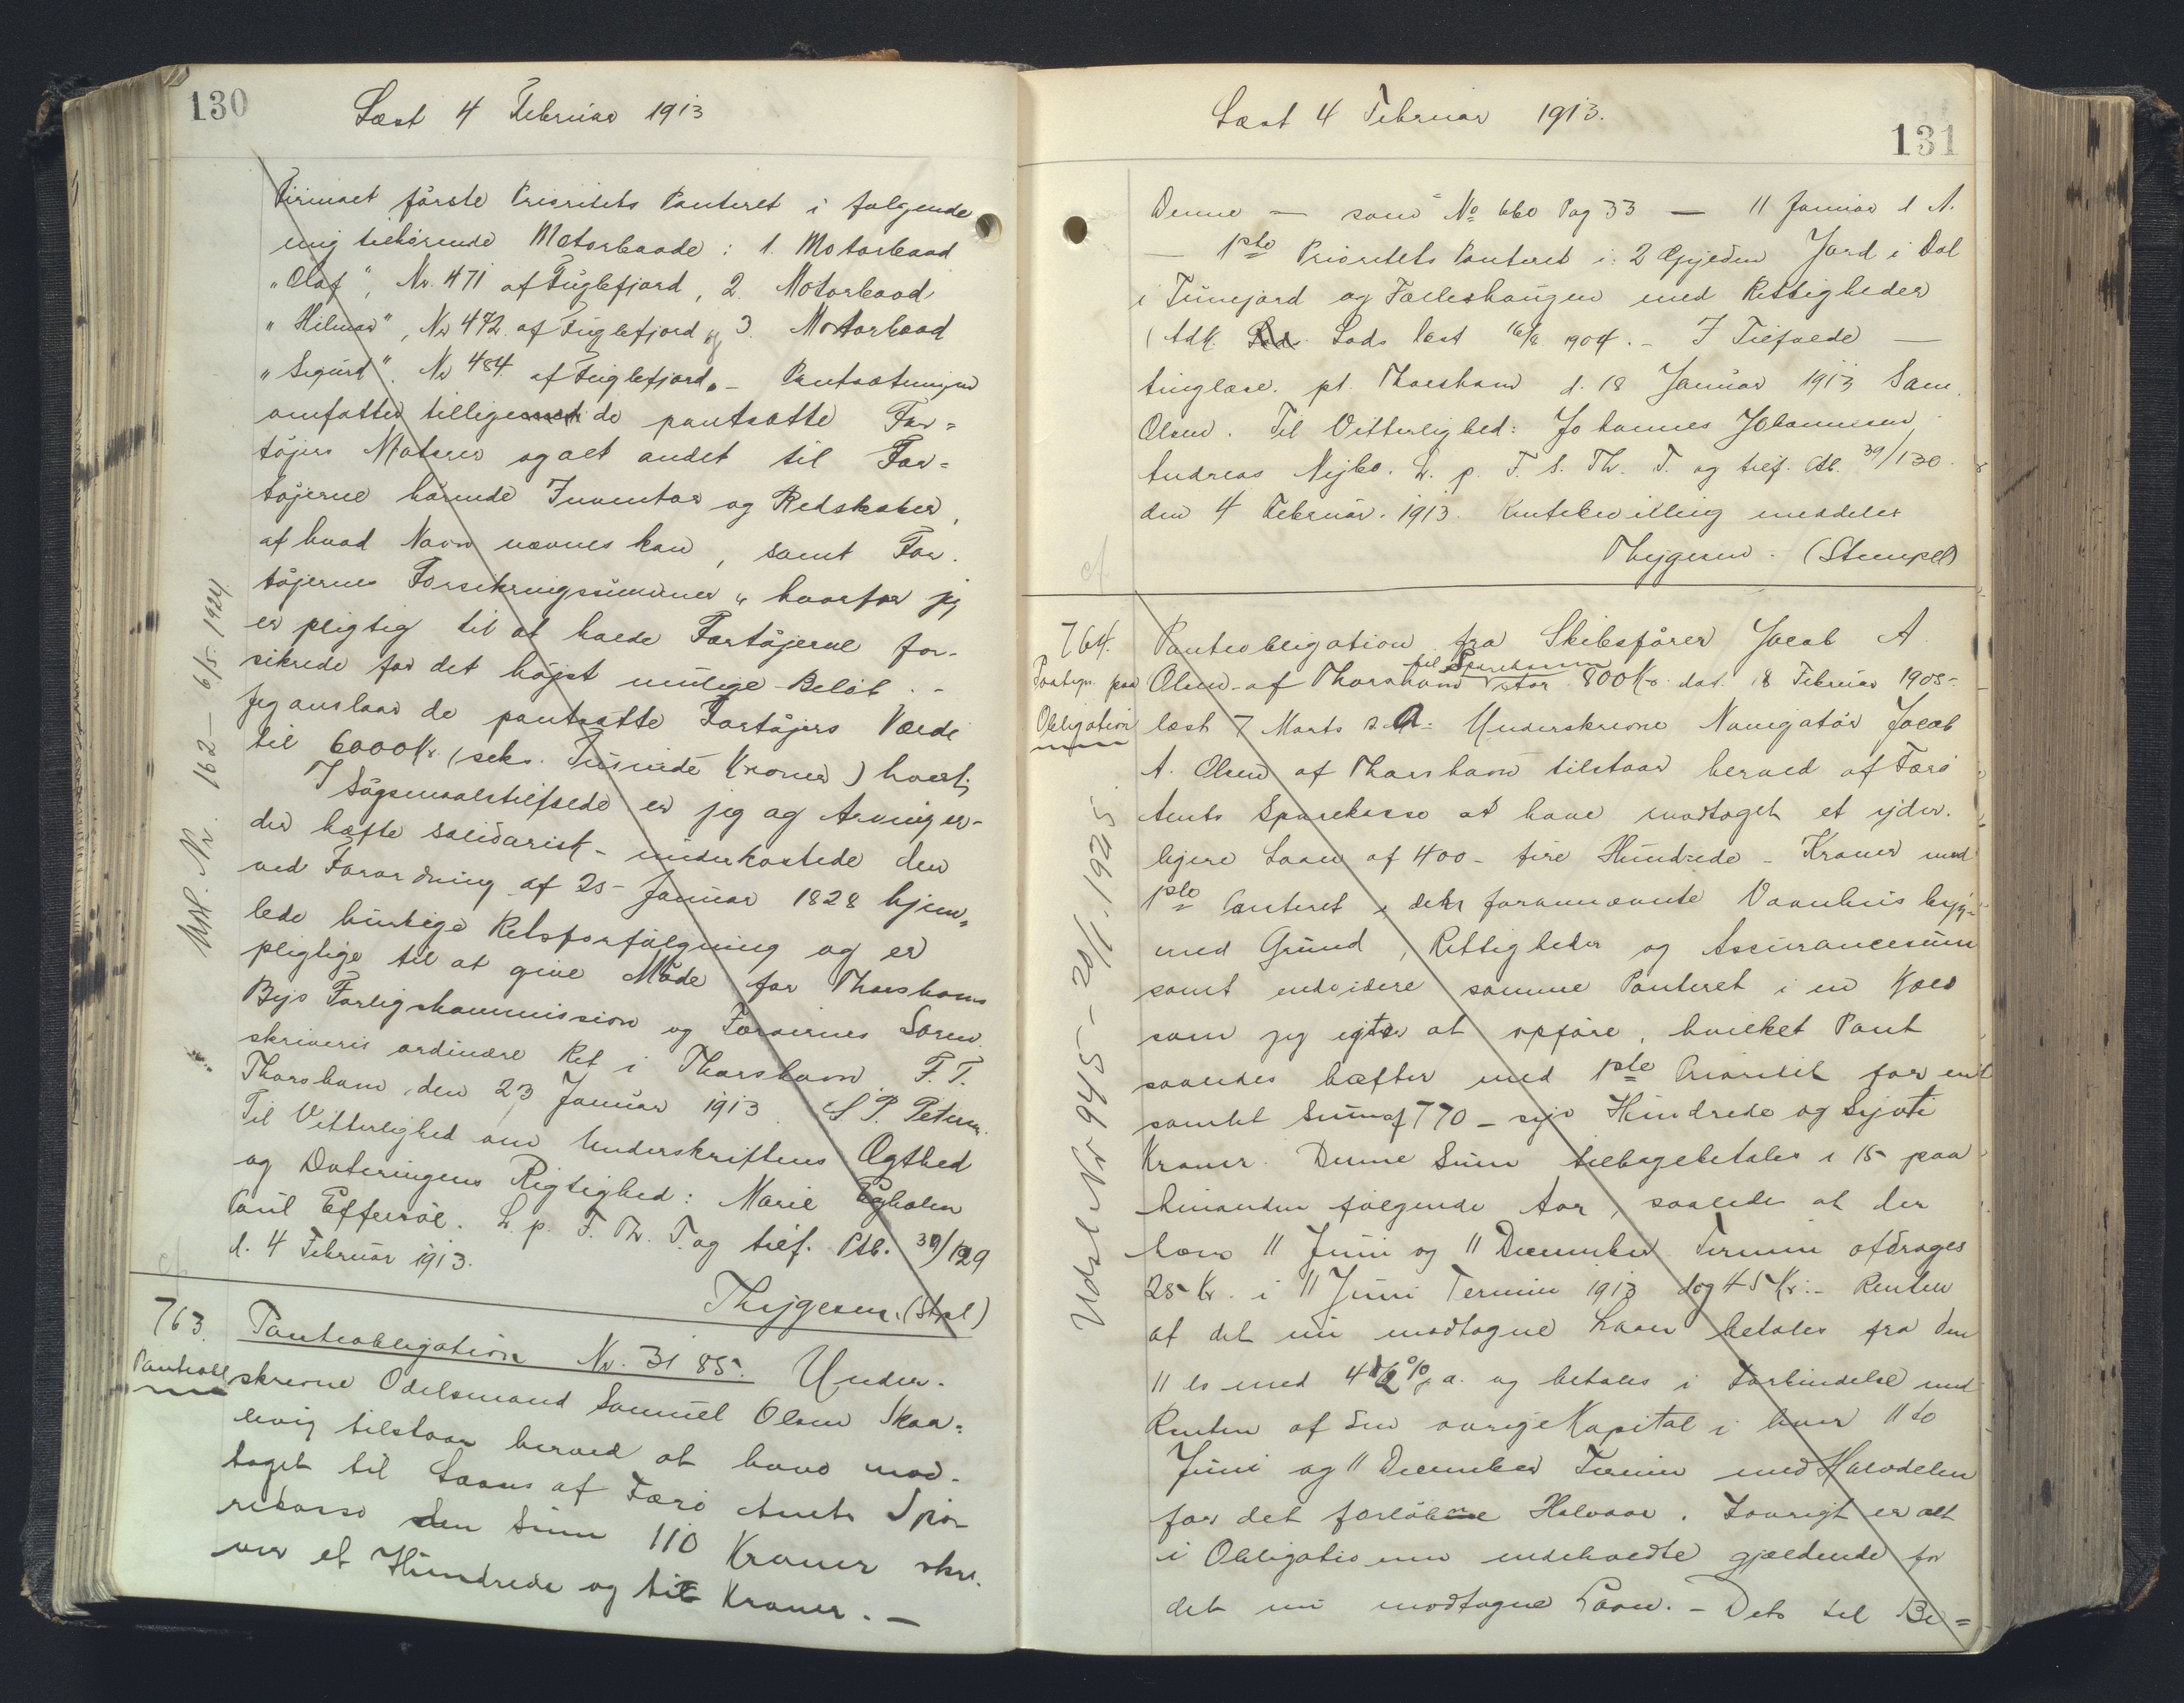 130
Læst 4 Februar 1913
Firmaet første Prioritets Panteret i følgende
mig tilhørende Motorbaade: 1. Motorbaad
"Olaf", Nr. 471 af Fuglefjord, 2. Motorbaad
"Hilmar", Nr 472 af Fuglefjord og 3. Motorbaad
"Sigurd". Nr 484 af Fuglefjord. - Pantsætningen
omfatter tillige de pantsatte Far=
tøjers Motorer og alt andet til Far=
tøjerne hørende Inventar og Redskaber,
af hvad Navn nævnes kan, samt Far-
tøjernes Forsikringssummer, hvorfor jeg
er pligtig til at holde Fartøjerne for-
sikrede for det højst mulige Beløb. -
Jeg anslaar de pantsatte Fartøjers Værdi
til 6000 Kr. (seks Tusinde Kroner) hvert.
I Søgsmaalstilfælde er jeg og Arvinger -
der hæfte solidarisk - underkastede den
ved Forordning af 25 Januar 1828 hjem=
lede hurtige Retsforfølgning og er
pligtige til at give Møde for Thorshavns
Byes Forligskommission og Færøernes Soren-
skriveris ordinære Ret i Thorshavn. F.T.
Thorshavn, den 23 Januar 1913. S. P. Petersen.
Til Vitterlighed om Underskriftens Ægthed
og Dateringens Rigtighed: Marie Egholm
Poul Effersøe. L. p. F. Th. T. og tilf. Ptb. 39/129
d. 4 Februar 1913.
Thygesen. (Stpl)
Udsl. Nr. 162 - 6/5 1924.
cf
763.
Panteobl
Panteobligation Nr. 3185. Under-
skrevne Odelsmand Samuel Olsen Skaa=
levig tilstaar herved at have mod-
taget til Laans af Færø Amts Spa-
rekasse den Sum 110 Kroner skri-
ver et Hundrede og ti Kroner. -
Læst 4 Februar 1913.
131
Denne - som No 660 Pag 33 - 11 Januar d A.
- 1ste Prioritets Panteret i 2 Gylden Jord i Dal
i Tunejord og Fælleshaugen med Rettigheder
(Adk. Lods læst 16/8 1904. - I Tilfælde -
tinglæse. pt. Thorshavn d. 18 Januar 1913 Sam.
Olsen. Til Vitterlighed: Johannes Johannesen
Andreas Nijbo. L. p. F. S. Th. T. og tilf. Ptb. 39/130
den 4 Februar. 1913. Rentebevilling meddeles
Thygesen - (Stempel)
cf.
764.
Paategn. paa
Obligation
Panteobligation fra Skibsfører Jacob A
Olsen af Thorshavn til Sparekassen stor 800 Kr. dat. 18 Februar 1905-
læst 7 Marts s. A. Underskrevne Navigatør Jacob
A. Olsen af Thorshavn tilstaar herved af Færø
Amts Sparekasse at have modtaget et yder-
ligere Laan af 400 - fire Hundrede - Kroner med
1ste Panteret i det forannævnte Vaanhus byg=
med Grund, Rettigheder og Assurancesum
samt endvidere samme Panteret i en Kjæld
som jeg agter at opføre, hvilket Pant
saaledes hæfter med 1ste Prioritet for ent
samlet Sum af 770 - syv Hundrede og Syvti
Kroner. Denne Sum tilbagebetales i 15 paa
hinanden følgende Aar, saaledes at der
hver 11 Juni og 11 December Termin afdrages
25 Kr. i 11 Juni Termin 1913 dog 45 Kr. - Renten
af det nu modtagne Laan betales fra den
11 ds med 4 1/2 % p. a. og betales i Forbindelse med
Renten af den øvrige Kapital i hver 11te
Juni og 11 December Termin med Halvdelen
for det forløbne Halvaar. Iøvrigt er alt
i Obligationen indeholdte gjældende for
det nu modtagne Laan. - Dets til Be=
Udsl. Nr 945 - 20/1. 1925.